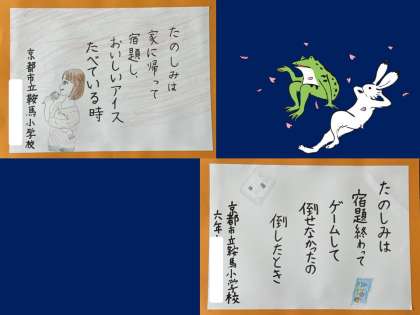 たのしみは
家に帰って
宿題し、
おいしいアイス
たべている時
京都市立鞍馬小学校
たのしみは
宿題終わって
ゲームして
倒せなかったの
倒したとき
京都市立鞍馬小学校
六年